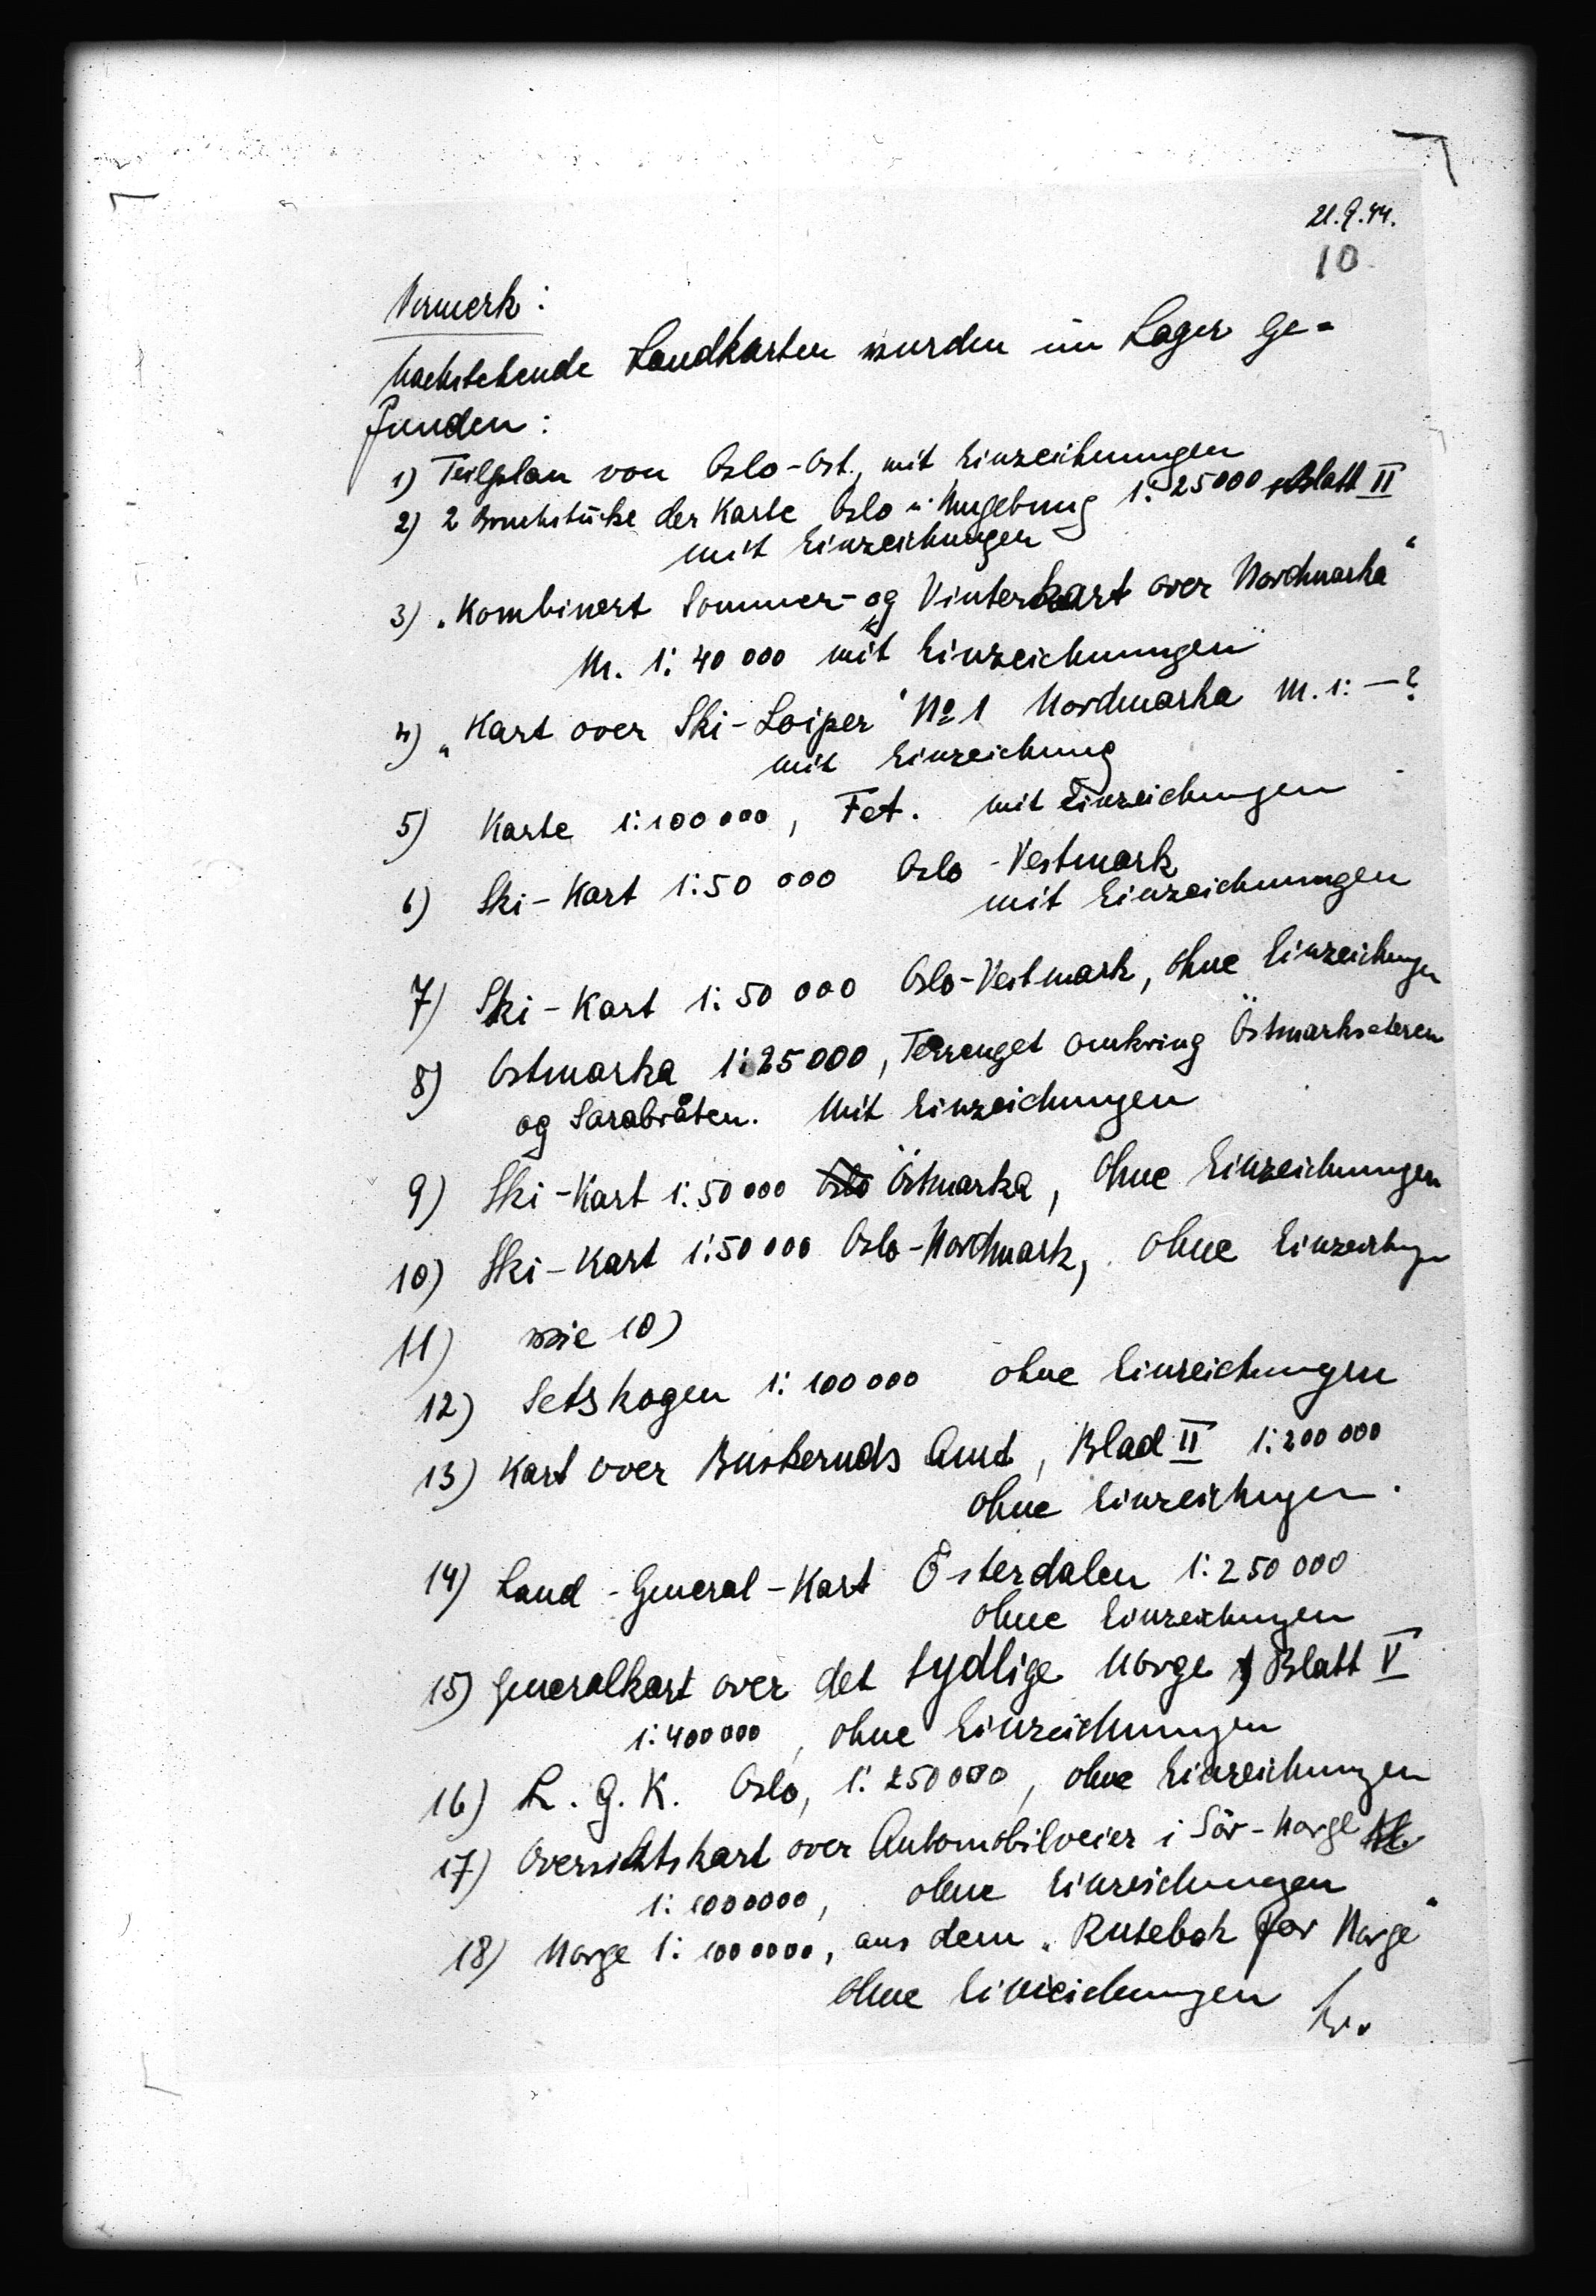 21.9.44.
10
Vermerk:
Nachstehende Landkarten wurden im Lager ge-
funden:
1) Teilplan von Oslo-Ost, mit Einzeichnungen
2) 2 Bruchstücke der Karte Oslo u Umgebung 1:25000 Blatt II
mit Einzeichnungen
3) „Kombinert Sommer- og Vinterkart over Nordmarka“
M. 1:40 000 mit Einzeichnungen
4) „Kart over Ski-Loiper“ No 1 Nordmarka M. 1: —?
mit Einzeichnung
5) Karte 1:100000, Fet. mit Einzeichnungen
6) Ski-Kart 1:50 000 Oslo-Vestmark
mit Einzeichnungen
7) Ski-Kart 1:50 000 Oslo-Vestmark, ohne Einzeichnungen
8) Ostmarka 1:25000, Terrenget omkring Östmarkseteren
og Sarabråten. Mit Einzeichnungen
9) Ski-Kart 1:50000 Oslo Östmarka, ohne Einzeichnungen
10) Ski-Kart 1:50000 Oslo-Nordmark, ohne Einzeichnungen
11) wie 10)
12) Setskogen 1:100000 ohne Einzeichnungen
13) Kart over Buskeruds Amt, Blad II 1:200000
ohne Einzeichnungen.
14) Land-General-Kart Österdalen 1:250000
ohne Einzeichnungen
15) Generalkart over det sydlige Norge, Blatt V
1:400000, ohne Einzeichnungen
16) L.G.K. Oslo, 1:250000, ohne Einzeichnungen
17) Oversichtskart over Automobilveier i Sör-Norge
1:1000000, ohne Einzeichnungen
18) Norge 1:1000000, aus dem „Rutebok for Norge“
ohne Einzeichnungen